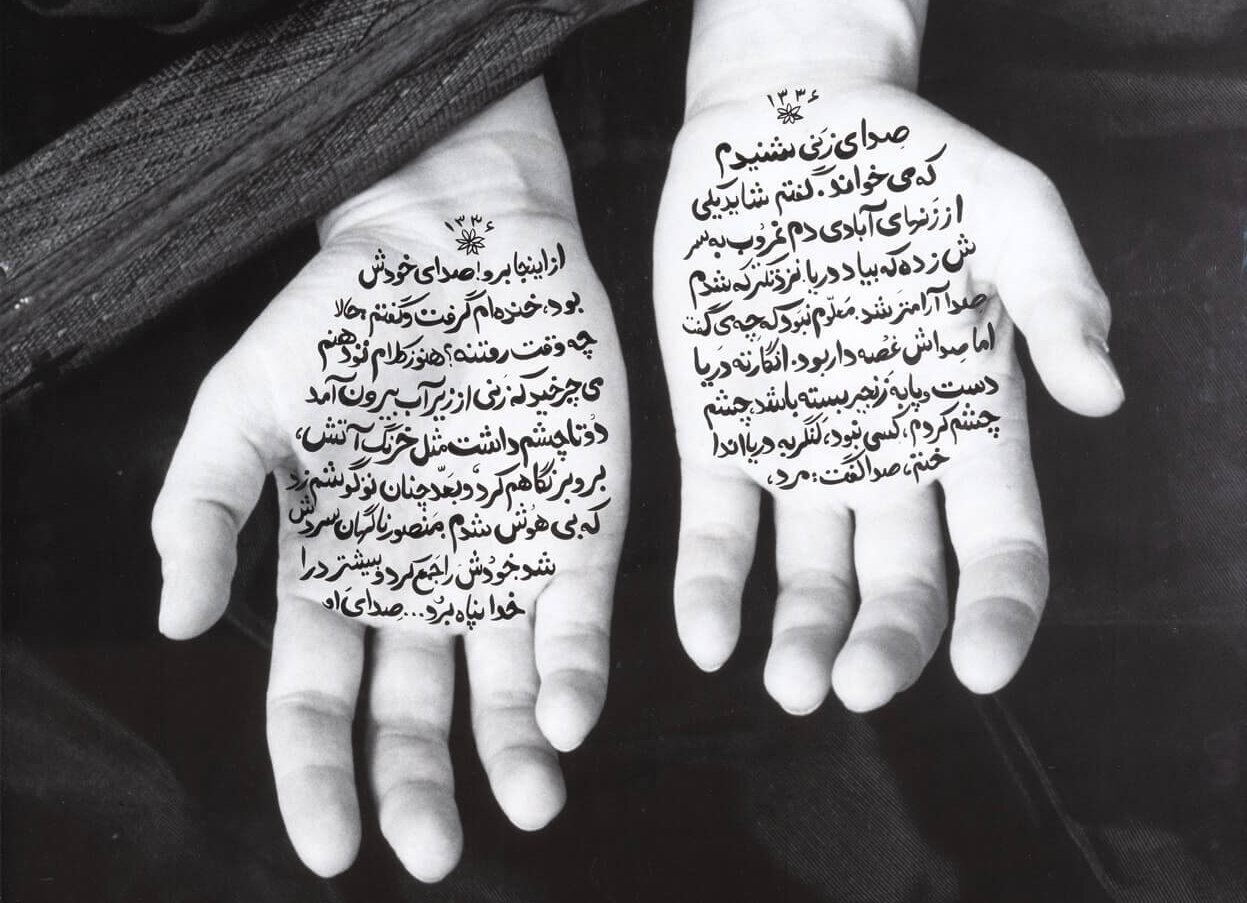 ۱۳۳۶
صدای زَنی شنیدم
که می خواند. گفتم شاید یکی
از زَنهای آبادی دم غروب به سر
ش زده که بیاد دریا. نزدیکتر که شدم
صدا آرامتر شد. معلوم نبود که چه می گفت
اما صداش غصه دار بود. انگار ته دریا
دست و پایه زنجیر بسته باشد، چشم
چشم کردم، کسی نبود، لنگر به دریا اندا
ختم، صدا گفت: مرد،
۱۳۳۶
از اینجا برو! صدای خودش
بود، خنده ام گرفت و گفتم حالا
چه وقت رفتنه؟ هنوز کلام تو دهنم
می چرخید که زنی از زیر آب بیرون آمد
دو تا چشم داشت مثل خرنگ آتش،
بروبر نگاهم کرد و بعد چنان تو گوشم زد
که بی هوش شدم. منصور ناگهان سردش
شد. خودش را جمع کرد و بیشتر در ا
خدا پناه برد... صدای او